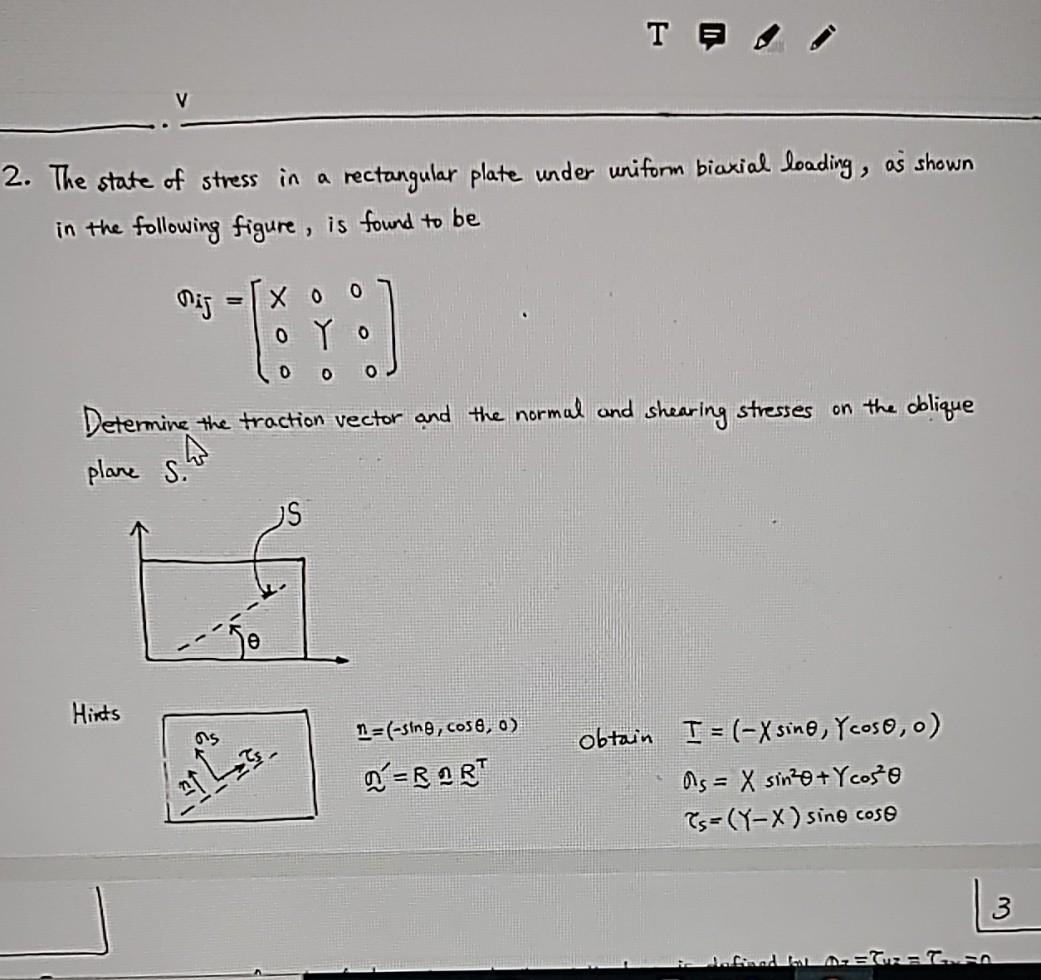 T
V
2. The state of stress in a rectangular plate under uniform biaxial loading, as shown
in the following figure, is found to be
σij = [X 0 0
0 Y 0
0 0 0]
Determine the traction vector and the normal and shearing stresses on the oblique
plane S.
S
θ
Hints
σs
n
τs
n=(-sinθ, cosθ, 0)
σ′=R σ Rᵀ
Obtain
T = (-X sinθ, Y cosθ, 0)
σs = X sin²θ + Y cos²θ
τs = (Y-X) sinθ cosθ
3
is defined by σz = τyz = τzx = 0